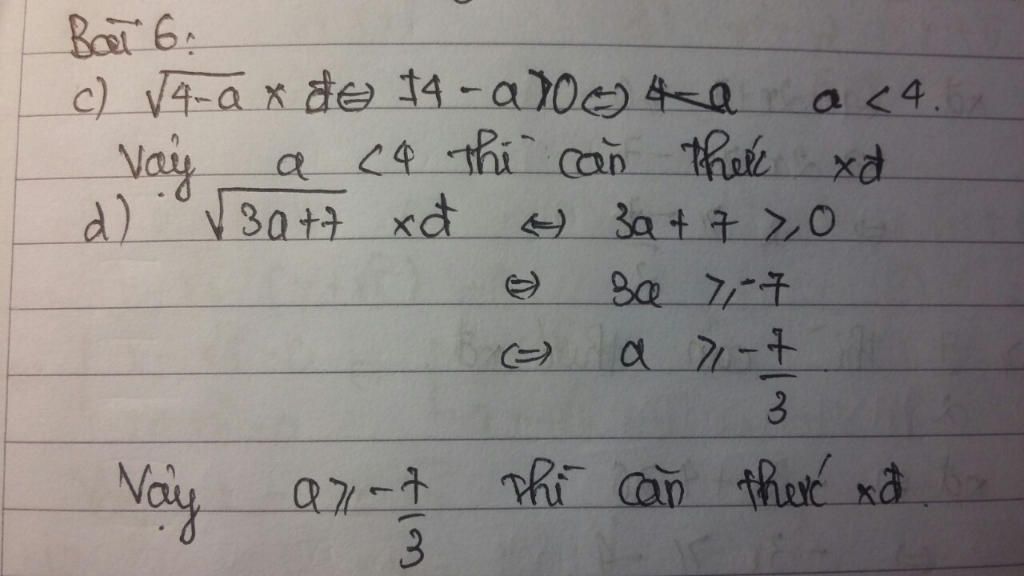 Bài 6:
c) √4-a xđ ⇔ 4 - a > 0 ⇔ a < 4.
Vậy a < 4 thì căn thức xđ
d) √3a+7 xđ ⇔ 3a + 7 ≥ 0
⇔ 3a ≥ -7
⇔ a ≥ -7/3
Vậy a ≥ -7/3 thì căn thức xđ.